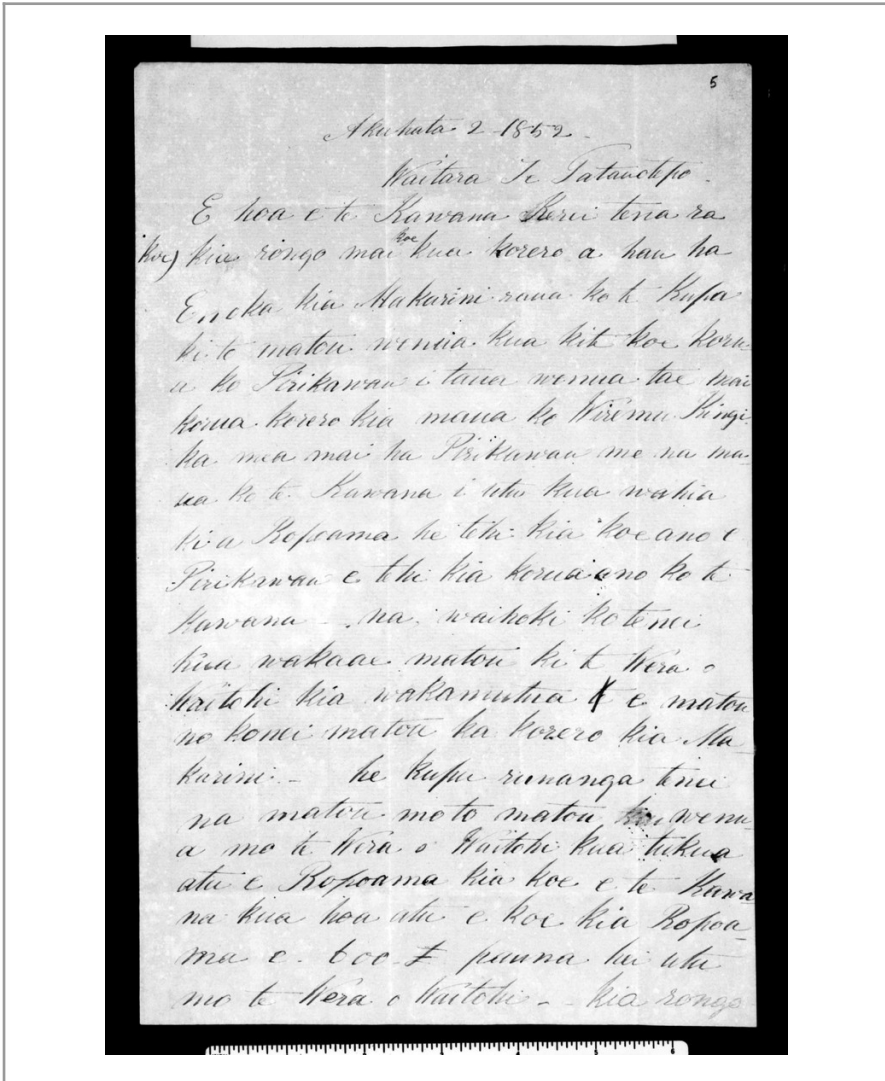 5
Akuhata 2 1852
Waitara Te Tatauotepo.
E hoa e te Kawana Kerei tena ra
koe) kia rongo mai koe kua korero a hau ha
Enoka kia Makarini raua ko te Kupa
ki te matou wenua kua kite koe koru-
a ko Pirikawau i taua wenua tae mai
korua korero kia maua ko Wiremu Kingi
ka mea mai ha Pirikawau me na ma-
ua ko te Kawana i utu kua wahia
ki a Ropoama he tehi kia koe ano e
Pirikawau e tehi kia korua ano ko te
Kawana - na, waihoki ko tenei
kua wakaae matou ki te Wera o
haitohi kia wakamutua e matou
no konei matou ka korero kia Ma
karini. - he kupu runanga tenei
na matou mo to matou wenu-
a mo te Wera o Waitohi kua tukua
atu e Ropoama kia koe e te Kawa
na kua hoa atu e koe kia Ropoa-
ma e. 600 £ pauna hei utu
mo te Wera o Waitohi - - kia rongo